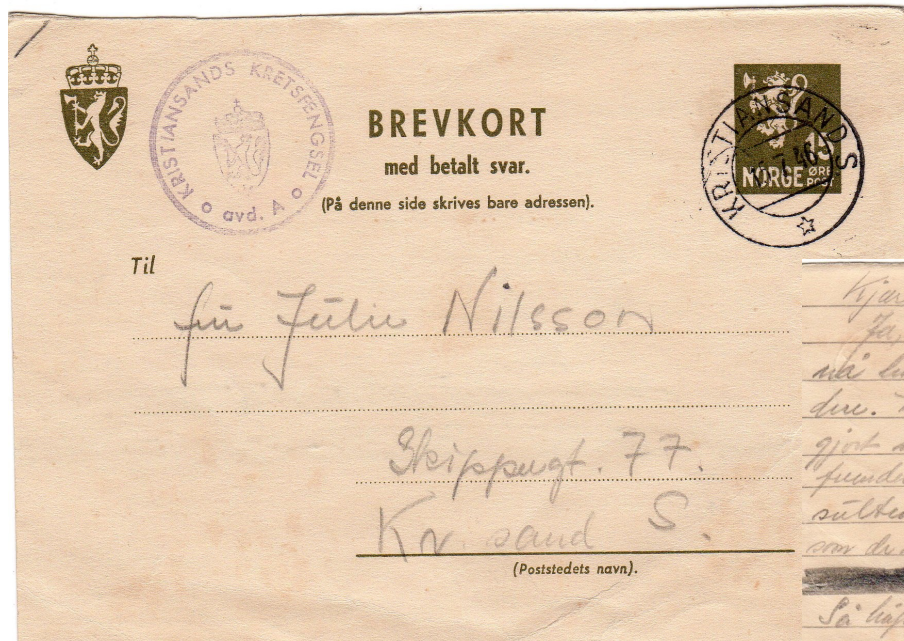 KRISTIANSANDS KRETSFENGSEL
avd. A
BREVKORT
med betalt svar.
(På denne side skrives bare adressen).
15
NORGE ØRE
POST
KRISTIANSAND S
7.46
Til
fru Julie Nilsson
Skippergt. 77.
Kr. sand S.
(Poststedets navn).
Kjær
Ja,
nå
gjort
som du
Så